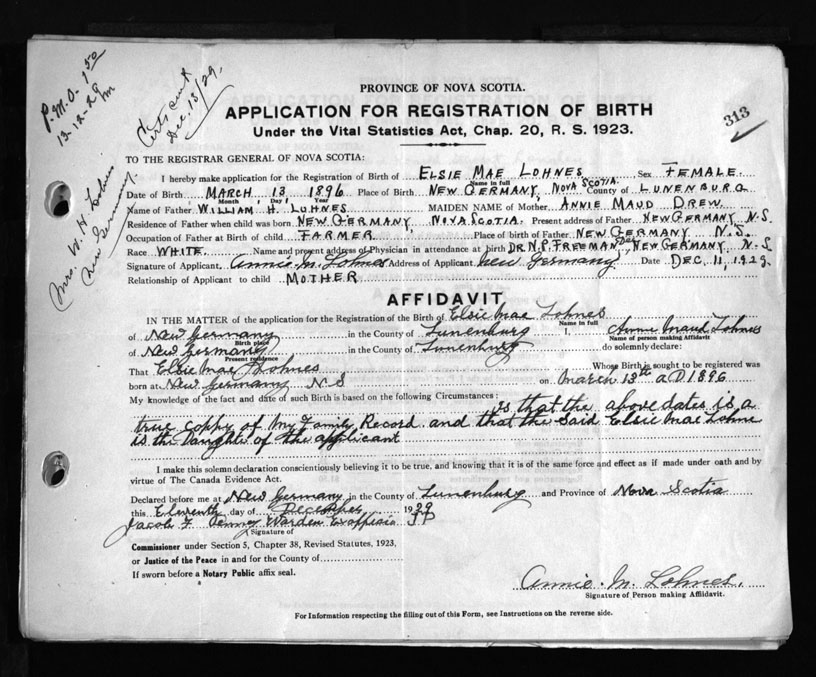 P.M.O. 1.50
13-12-29
Certs sent
Dec. 13/29.
Mrs. W. H. Lohnes
New Germany.
PROVINCE OF NOVA SCOTIA.
APPLICATION FOR REGISTRATION OF BIRTH
313
Under the Vital Statistics Act, Chap. 20, R. S. 1923.
TO THE REGISTRAR GENERAL OF NOVA SCOTIA:
I hereby make application for the Registration of Birth of ELSIE MAE LOHNES Sex FEMALE
Name in full
Date of Birth MARCH 13 1896 Place of Birth NEW GERMANY, NOVA SCOTIA. County of LUNENBURG
Month Day Year
Name of Father WILLIAM H. LOHNES MAIDEN NAME of Mother ANNIE MAUD DREW
Residence of Father when child was born NEW GERMANY, NOVA SCOTIA. Present address of Father NEW GERMANY N.S.
Occupation of Father at Birth of child FARMER Place of birth of Father NEW GERMANY N.S.
Race WHITE. Name and present address of Physician in attendance at birth DR N.P. FREEMAN NEW GERMANY N-S
Signature of Applicant Annie M. Lohnes Address of Applicant New Germany Date DEC. 11, 1929.
Relationship of Applicant to child MOTHER
AFFIDAVIT
IN THE MATTER of the application for the Registration of the Birth of Elsie Mae Lohnes
Name in full
of New Germany in the County of Lunenburg I, Annie Maud Lohnes
Birth place Name of person making Affidavit
of New Germany in the County of Lunenburg do solemnly declare:
Present residence
That Elsie Mae Lohnes Whose Birth is sought to be registered was
born at New Germany N S on March 13th A.D 1896
My knowledge of the fact and date of such Birth is based on the following Circumstances:
is that the above dates is a
true coppy of My Family Record and that the Said Elsie Mae Lohne
is the Daughte of the applicant
I make this solemn declaration conscientiously believing it to be true, and knowing that it is of the same force and effect as if made under oath and by
virtue of The Canada Evidence Act.
Declared before me at New Germany in the County of Lunenburg and Province of Nova Scotia
this Eleventh day of December 1929
Jacob F Warden JP
Signature of
Commissioner under Section 5, Chapter 38, Revised Statutes, 1923,
or Justice of the Peace in and for the County of
If sworn before a Notary Public affix seal.
Annie. M. Lohnes.
Signature of Person making Affidavit.
For Information respecting the filling out of this Form, see Instructions on the reverse side.